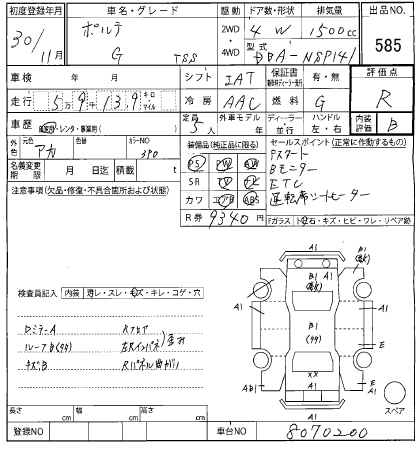 初度登録年月 車名・グレード 駆動 ドア数・形状 排気量 出品NO.
30/11月 ポルテ G TSS 2WD 4WD 4W 1500cc 585
型式 DBA-NSP141
車検 年 月 シフト IAT 保証書 有・無 評価点
走行 5万9千139 キロ マイル 冷房 AAC 燃料 G R
車歴 自家用・レンタ・事業用( ) 定員 5人 外車モデル ディーラー 並行 ハンドル 左・右 内装評価 B
外色 元色 アカ 色替 カラーNO 3P0
装備品(純正品に限る) セールスポイント(正常に作動するもの)
PS PW SR カワ エアB ABS
Pスタート
Bモニター
ETC
運転席シートヒーター
名義変更期限 月 日迄 積載 t
注意事項(欠品・修復・不具合箇所および状態)
R券 9340円
Fガラス トビ石・キズ・ヒビ・ワレ・リペア跡
検査員記入 内装 汚レ・スレ・キズ・キレ・コゲ・穴
DミラーA Rフロア
ルーフB(タタ) 左右インパネ
キズB Rパネル曲がり
A1
B1
A1
B1
A1
A1
B1
(タタ)
E
XX
AB1
A1
E
A1
A1
スペア
長さ cm 幅 cm 高さ cm
登録NO 車台NO 8070200